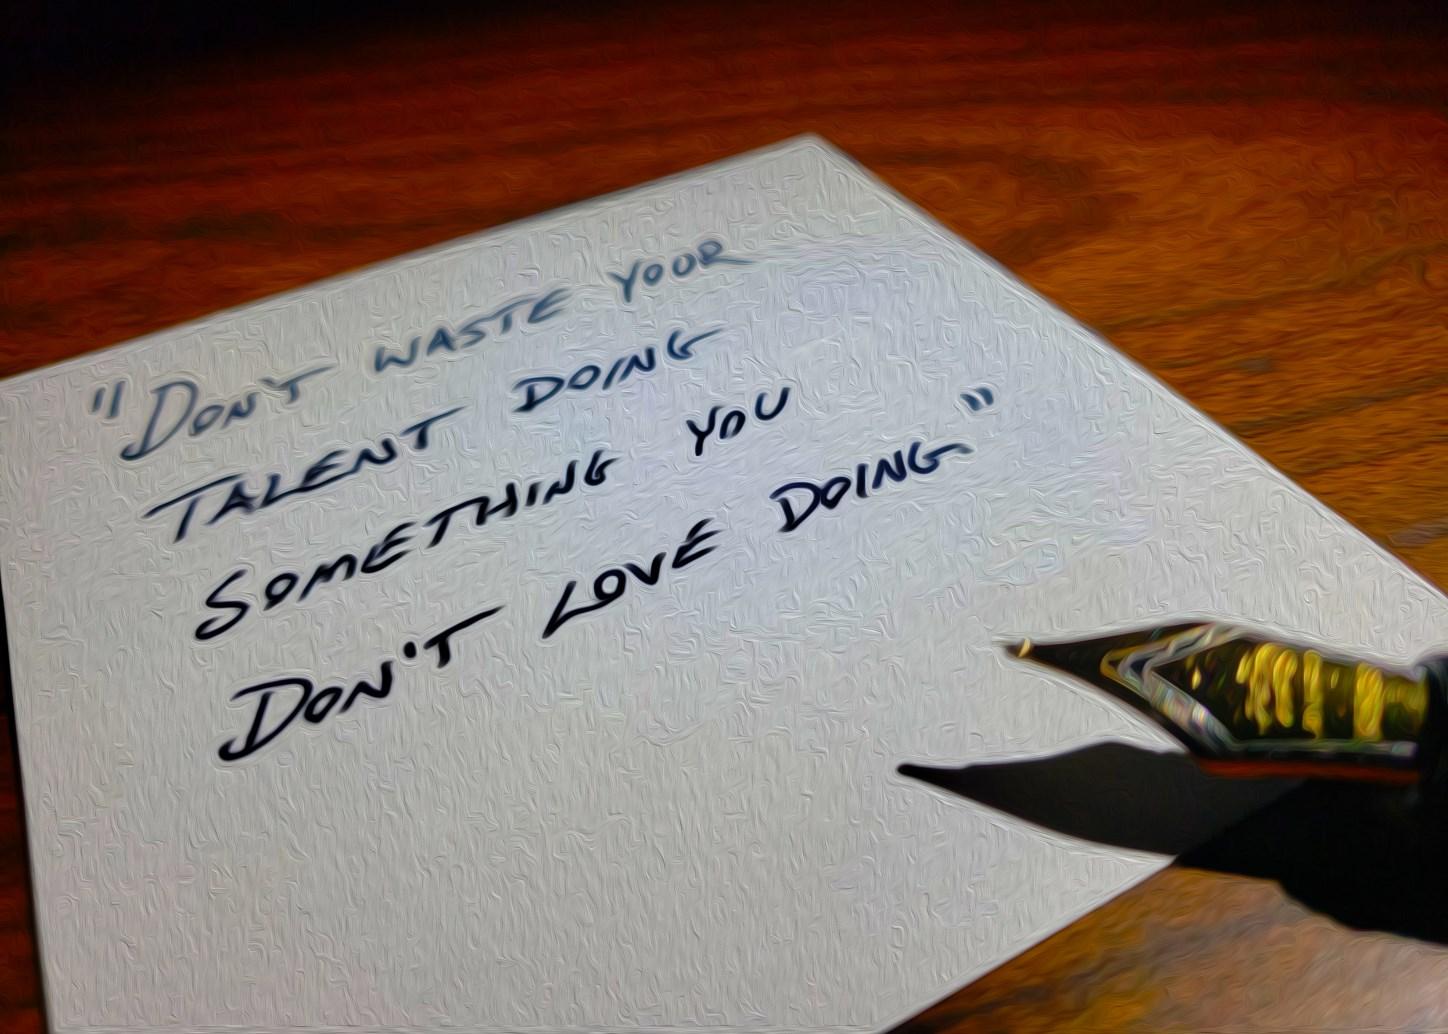 "DON'T WASTE YOUR
TALENT DOING
SOMETHING YOU
DON'T LOVE DOING"